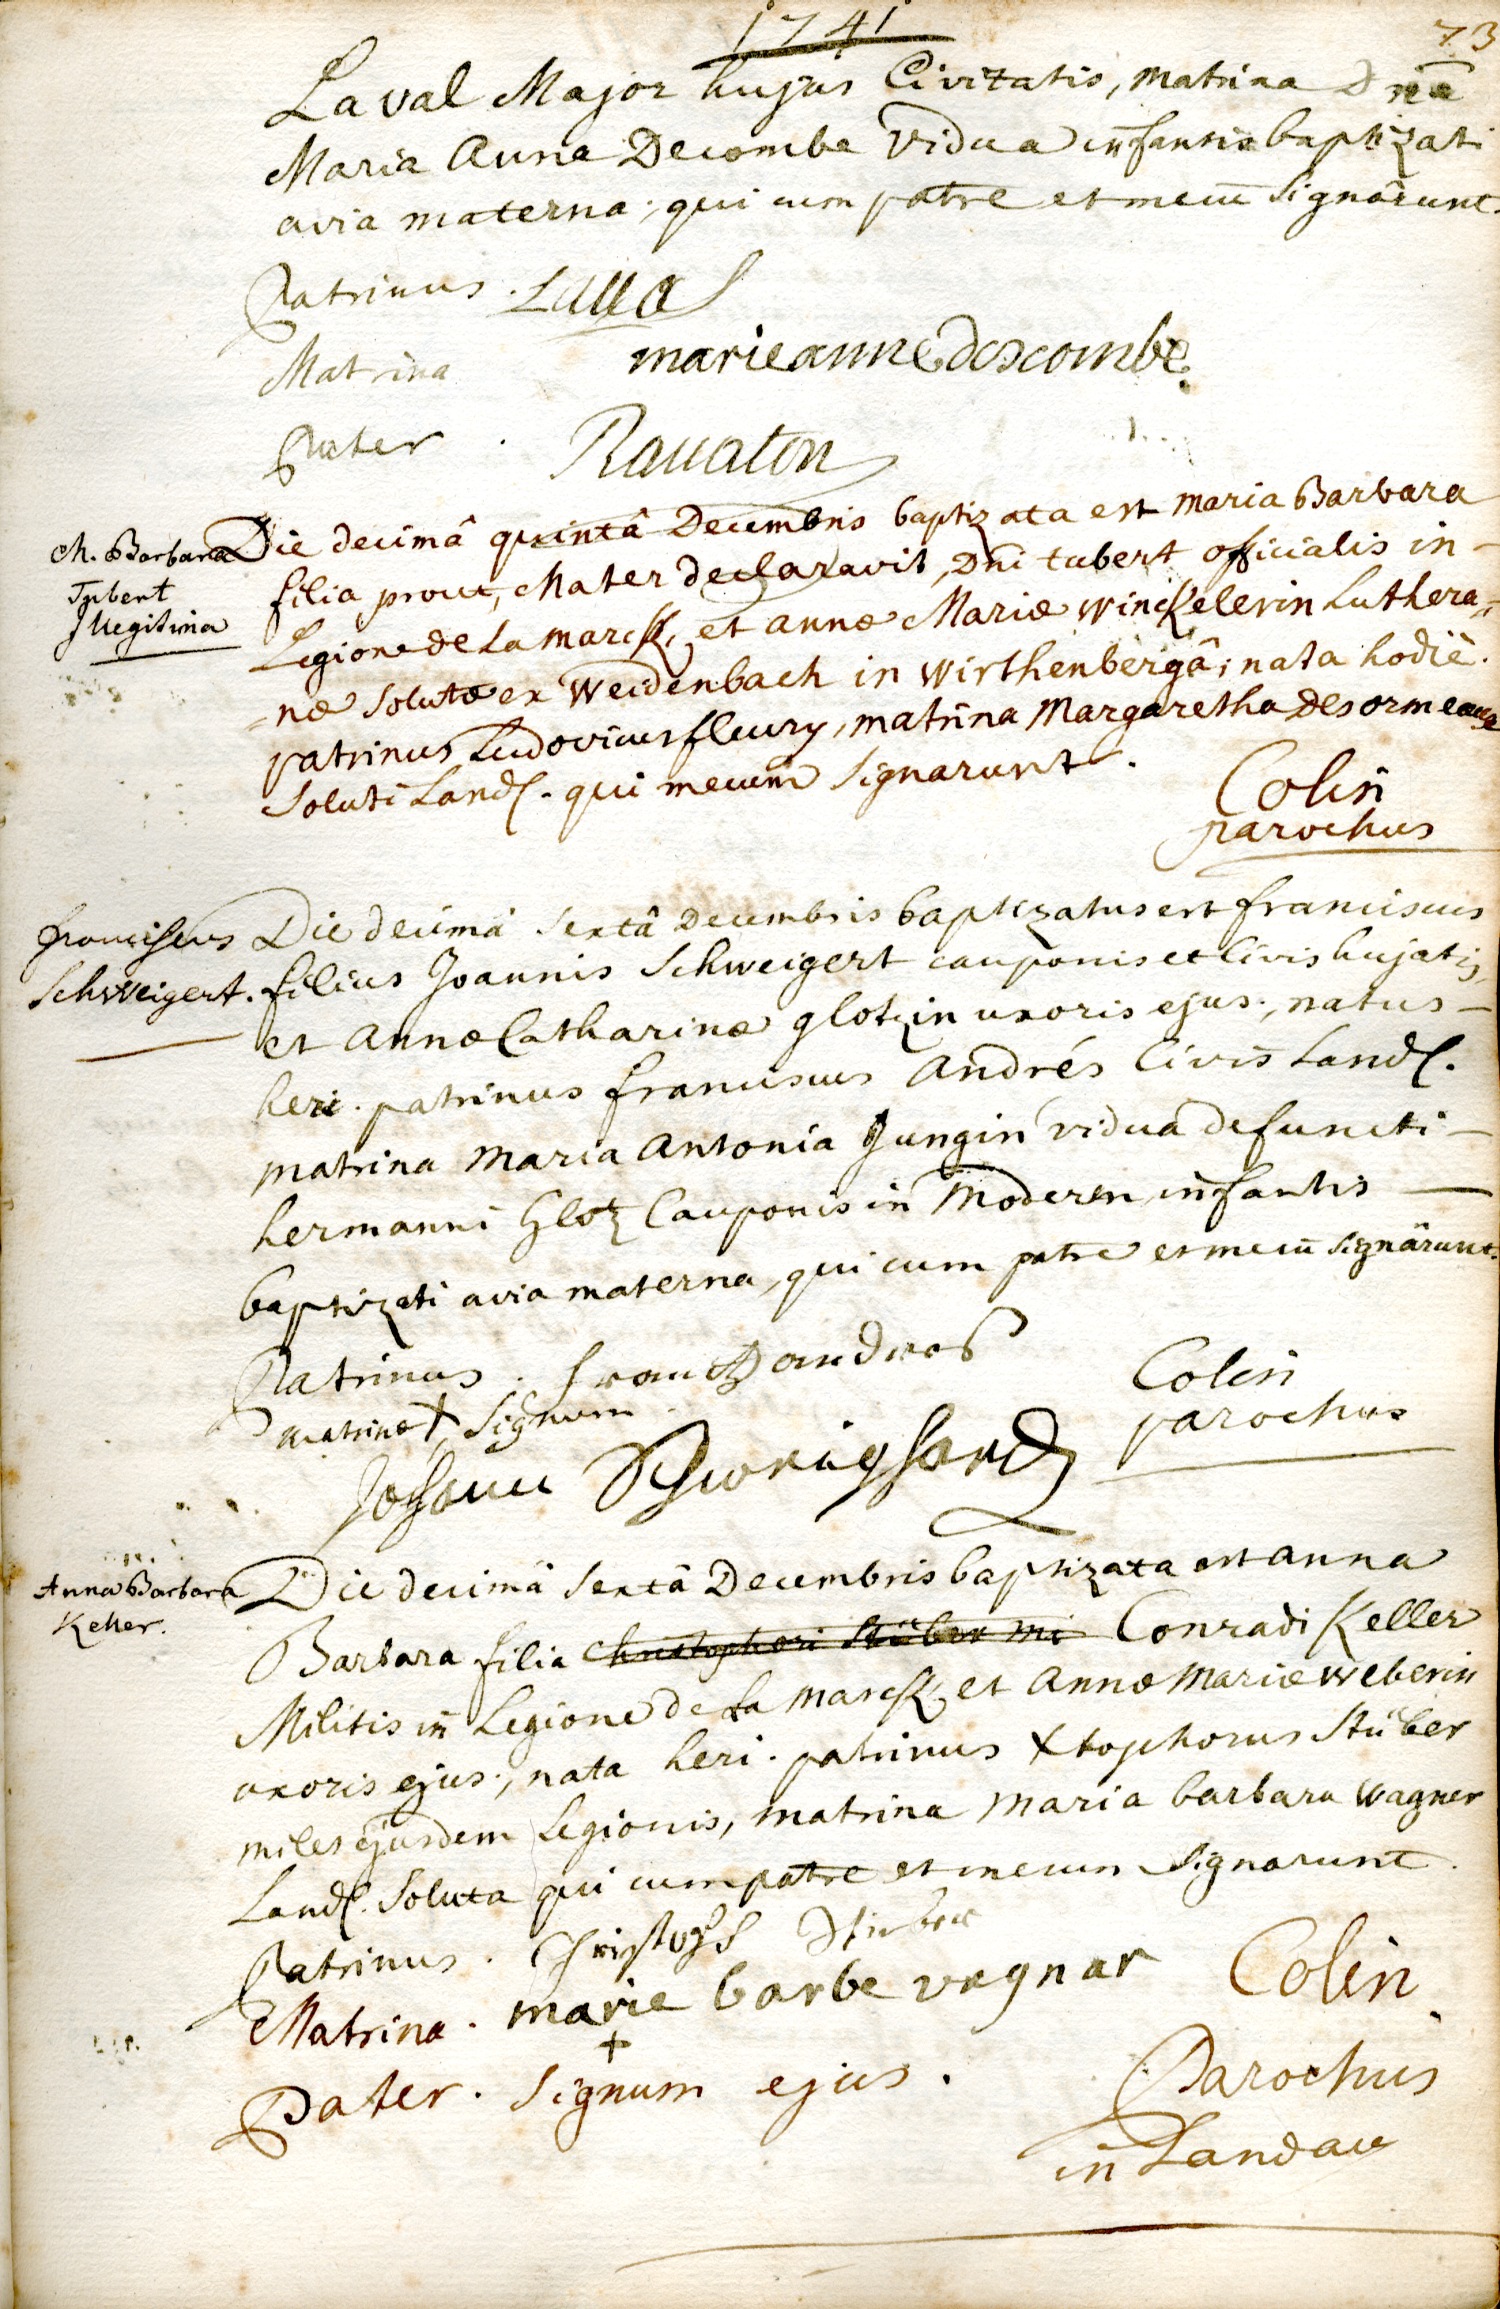 1741
73
Laval Major hujus Civitatis, matrina Dna
Maria Anna Decombe Vidua infantis baptizati
avia materna; qui cum patre et mecū signârunt.
Patrinus. Laual
Matrina marieanne descombe
Pater. Rauaton
M. Barbara
Tubert
Illegitima
Die decimâ quintâ Decembris baptizata est Maria Barbara
filia prout, Mater declaravit, Dni tubert officialis in-
Legione de La marck, et annæ Mariæ Winckelerin Luthera,,
næ solutæ ex Weidenbach in Wirthenbergâ; nata hodiè.
patrinus Ludovicus fleury, matrina Margaretha Desormeaux
soluti Land. qui mecum signarunt.
Colin
parochus
franciscus
Schweigert.
Die decimâ sextâ Decembris baptizatus est franciscus
filius Joannis Schweigert cauponis et Civis hujatis,
et Annæ Catharinæ glotzin uxoris ejus; natus-
heri. patrinus franciscus Andrés Civis Land.
matrina Maria Antonia Jungin vidua defuncti-
hermanni Glotz Cauponis in Modern infantis
baptizati avia materna, qui cum patre et mecū signârunt.
Patrinus. frantz andres
matrinæ + signum
Johann Schweighardt
Colin
parochus
Anna Barbara
Keller.
Die decimâ sextâ Decembris baptizata est anna
Barbara filia Christophori Stüber mi Conradi Keller
Militis in Legione de La Marck, et Annæ Mariæ Weberin
uxoris ejus; nata heri. patrinus Xtophorus Stüber
miles ejusdem Legionis, matrina Maria barbara Wagner
Land. soluta qui cum patre et mecum signarunt.
Patrinus. Christoph Stieber
Matrina. marie barbe vagnar
+
Pater. signum ejus.
Colin
Parochus
in Landau